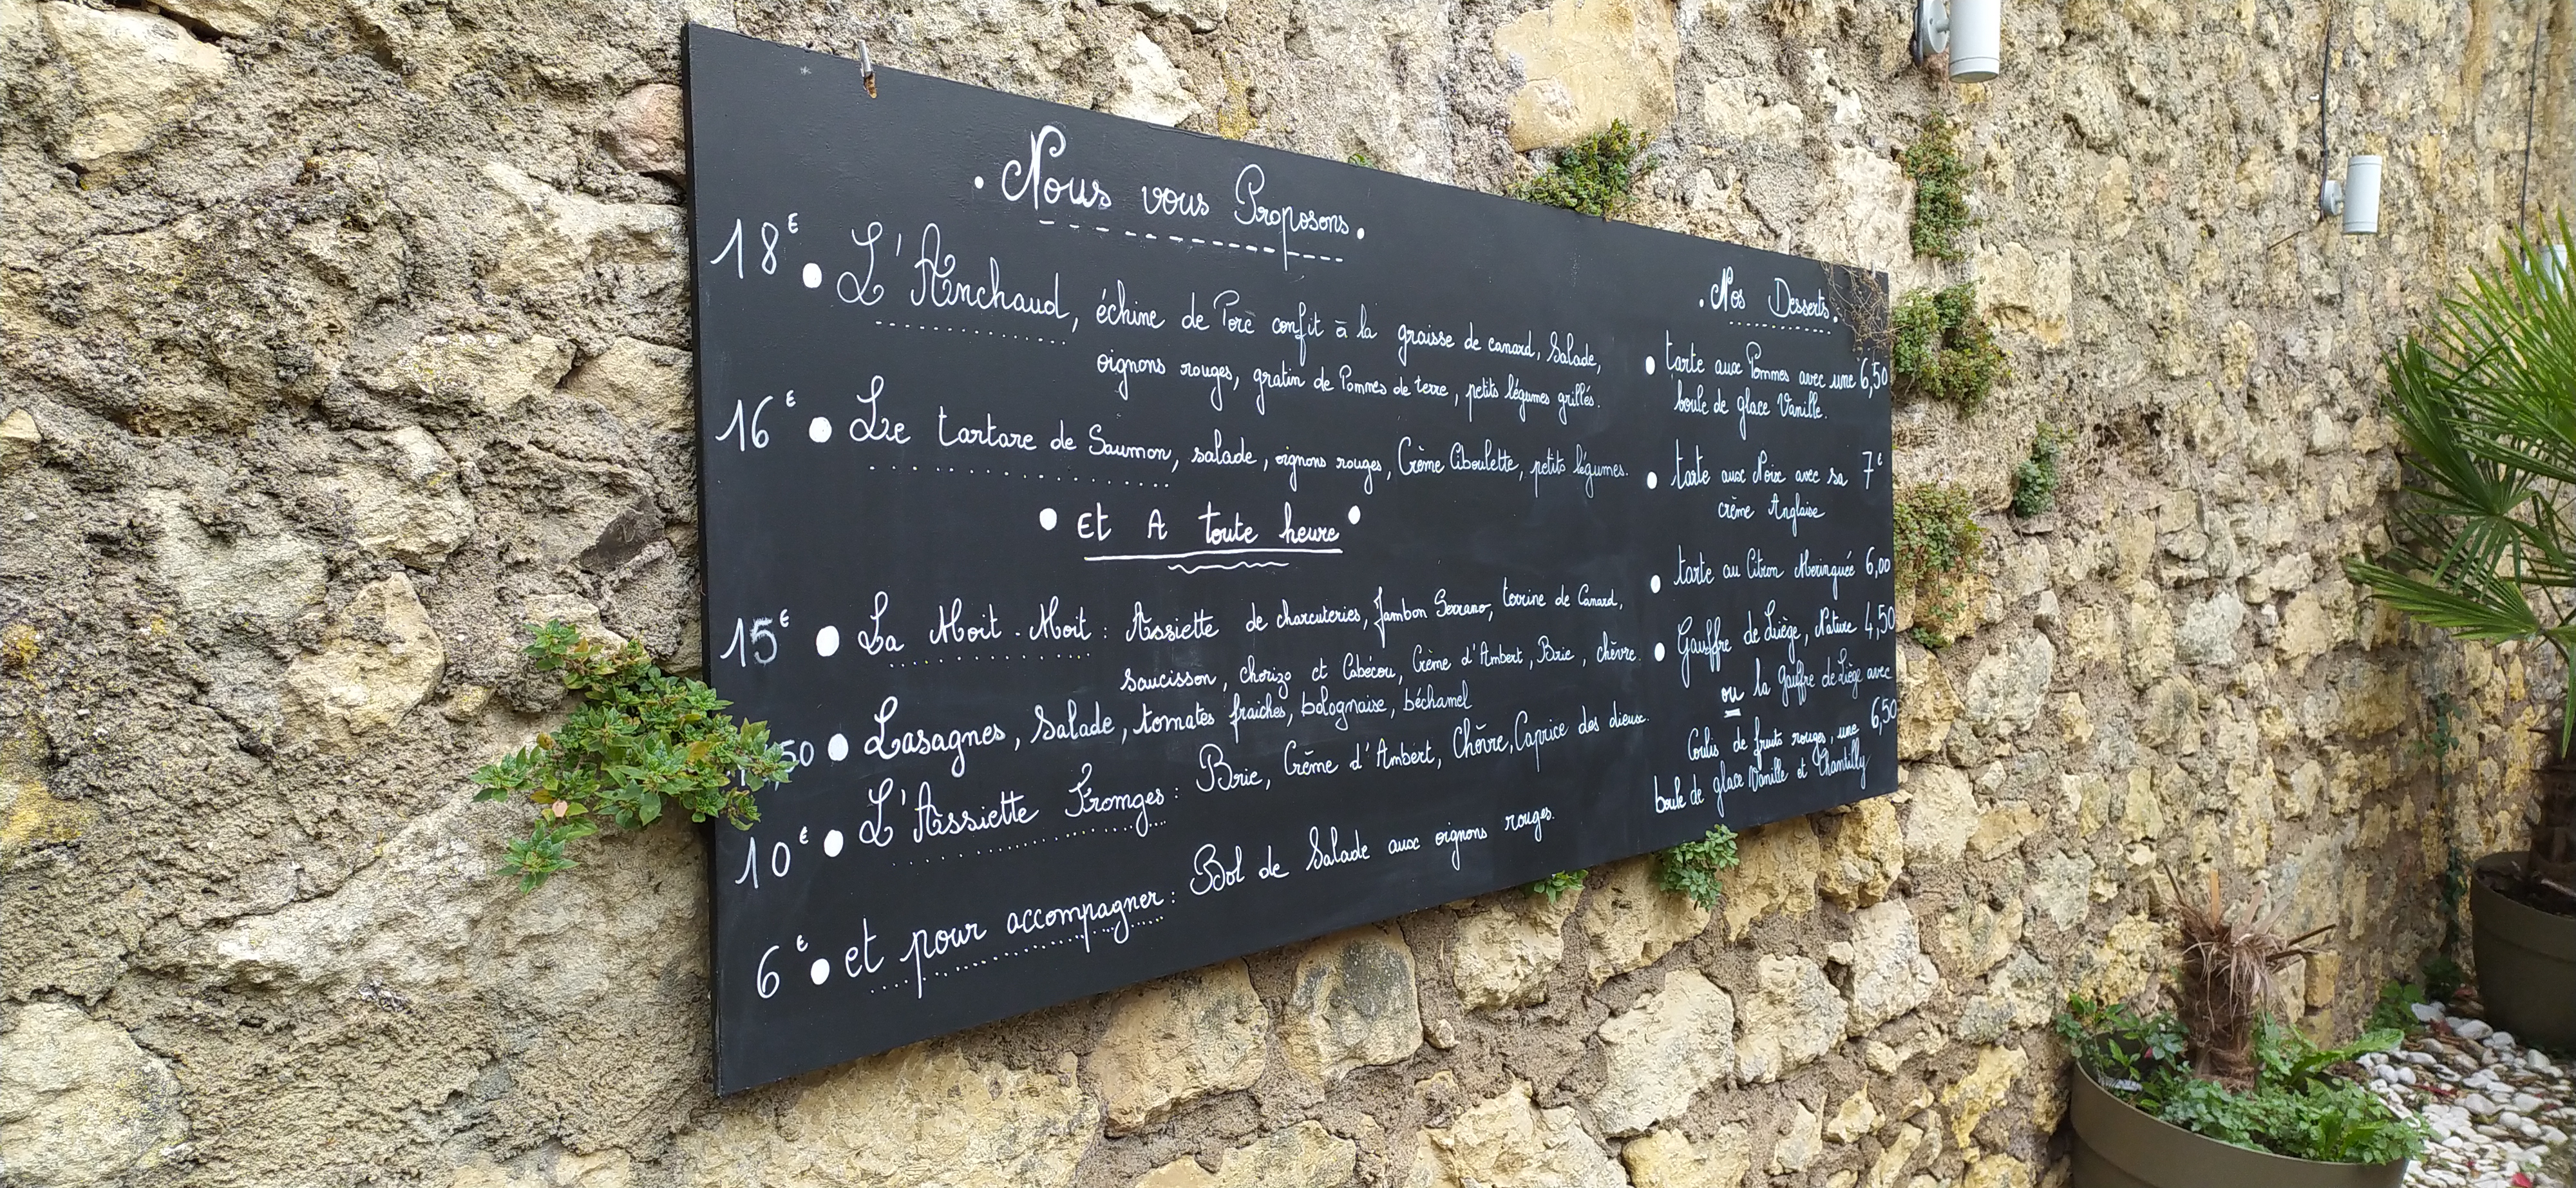 . Nous vous Proposons.
18€ • L'Anchaud, échine de Porc confit à la graisse de canard, Salade,
oignons rouges, gratin de Pommes de terre, petits légumes grillés.
16€ • Le tartare de Saumon, salade, oignons rouges, Crème Ciboulette, petits légumes.
• Et A toute heure •
15€ • La Moit-Moit : Assiette de charcuteries, Jambon Serrano, terrine de Canard,
saucisson, chorizo et Cabécou, Crème d'Ambert, Brie, chèvre.
,50 • Lasagnes, Salade, tomates fraiches, bolognaise, béchamel
10€ • L'Assiette Fromges : Brie, Crème d'Ambert, Chèvre, Caprice des dieux.
6€ • et pour accompagner : Bol de Salade aux oignons rouges.
. Nos Desserts.
• tarte aux Pommes avec une 6,50
boule de glace Vanille.
• tarte aux Noix avec sa 7€
crème Anglaise
• tarte au Citron Meringuée 6,00
• Gauffre de Liège, Nature 4,50
ou la Gauffre de Liège avec
Coulis de fruits rouges, une 6,50
boule de glace Vanille et Chantilly